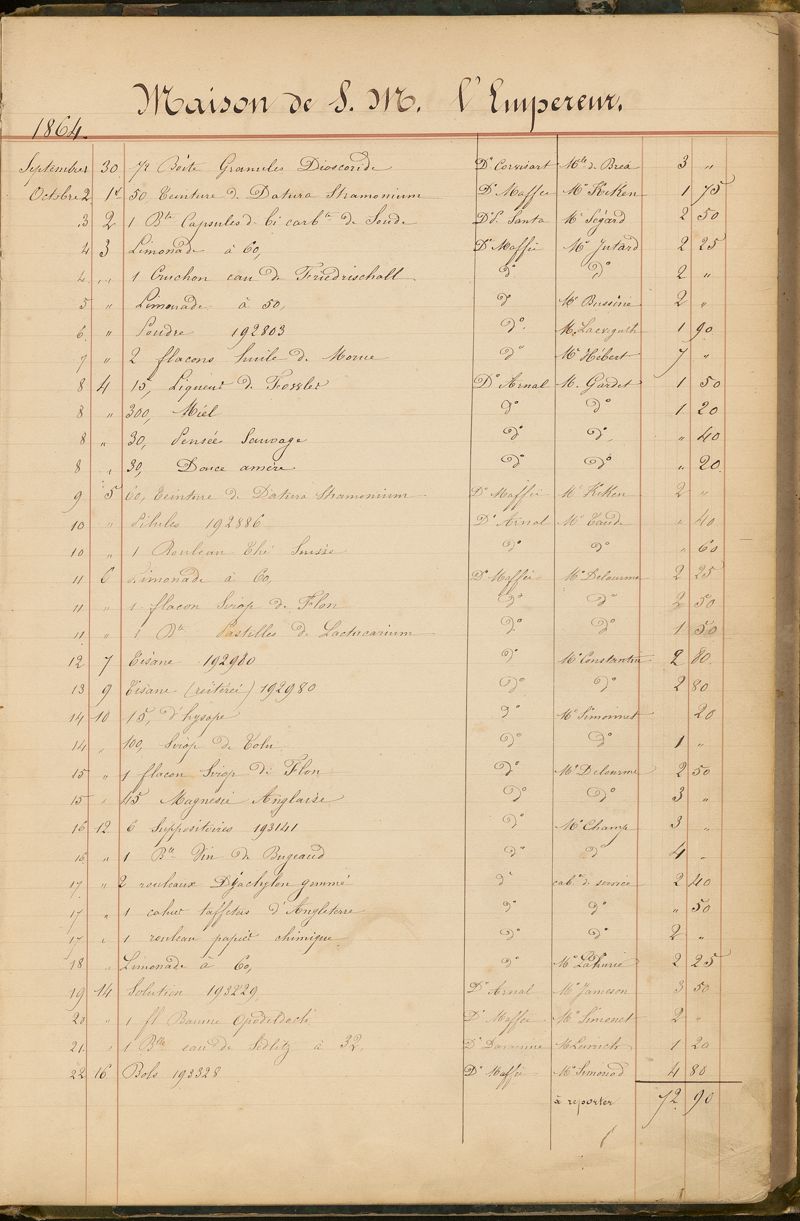 Maison de S. M. l'Empereur.
1864.
Septembre 30 1/2 Boîte Granules Dioscoride Dr Corvisart Mlle de Bréa 3 "
Octobre 2 1er 50 Teinture de Datura Stramonium Dr Maffei Mr Kieken 1 75
3 2 1 Bte Capsules de bi carbte de Soude Dr Santa Mr Ségard 2 50
4 3 Limonade à 60, Dr Maffei Mr Jutard 2 25
4 " 1 Cruchon eau de Friedrischall do do 2 "
5 " Limonade à 50, do Mr Bussine 2 "
6 " Poudre 192803 do 1 90
7 " 2 flacons huile de Morue do Mr Hébert 7 "
8 4 15, Liqueur de Dr Arnal M. Gardet 1 50
8 " 300, Miel do do 1 20
8 " 30, Pensée Sauvage do do " 40
8 " 30, Douce amère do do " 20
9 5 60, Teinture de Datura Stramonium Dr Maffei Mr Kieken 2 "
10 " Pilules 192886 Dr Arnal Mr " 40
10 " 1 Rouleau Thé Suisse do do " 60
11 6 Limonade à 60, Dr Maffei Mr Delourme 2 25
11 " 1 flacon Sirop de Flon do do 2 50
11 " 1 Bte Pastilles de Lactucarium do do 1 50
12 7 Tisane 192980 do Mr Constantin 2 80
13 9 Tisane (réitérée) 192980 do do 2 80
14 10 15, d'hysope do Mr Simonnet 20
14 " 100, Sirop de Tolu do do 1 "
15 " 1 flacon Sirop de Flon do Mr Delourme 2 50
15 " 45 Magnésie Anglaise do do 3 "
16 12 6 Suppositoires 193141 do Mr Champ 3 "
16 " 1 Blle Vin de Bugeaud do do 4 "
17 " 2 rouleaux Dyachylon gommé do cabt de service 2 40
17 " 1 cahier taffetas d'Angleterre do do " 50
17 " 1 rouleau papier chimique do do 2 "
18 " Limonade à 60, do Mr Lahurie 2 25
19 14 Solution 193229 Dr Arnal Mr Jameson 3 50
20 " 1 fl Baume Opodeldoch Dr Maffei Mr Simonet 2 "
21 " 1 Blle eau de Sedlitz à 32, Dr 1 20
22 16 Bols 193328 Dr Maffei Mr 4 80
à reporter 72 90